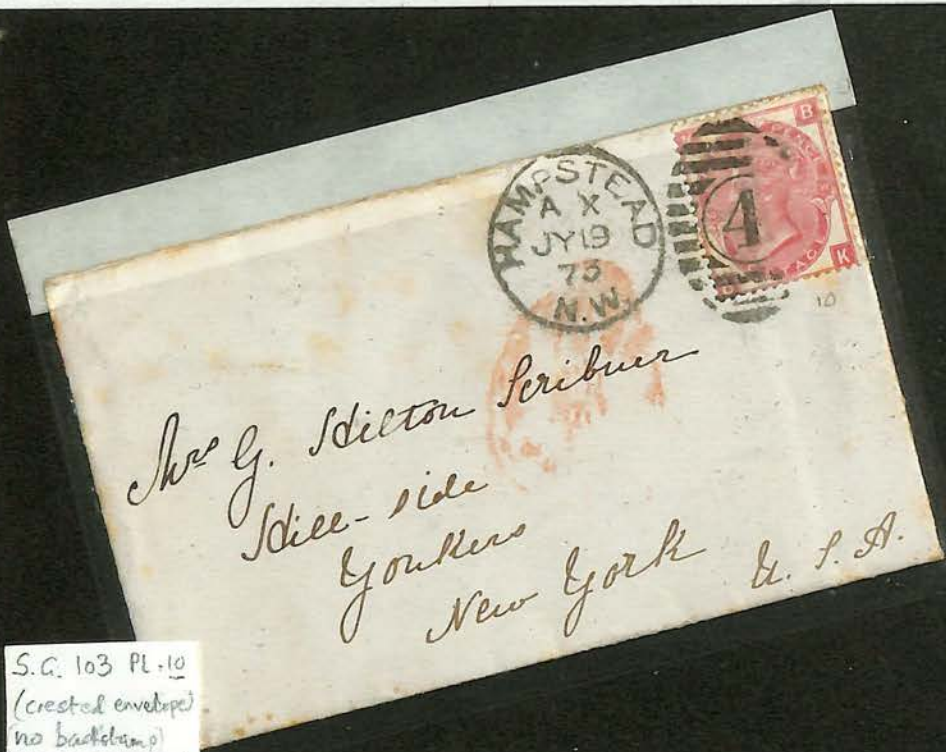 HAMPSTEAD
A X
JY 19
73
N.W.
4
B
K
10
Mrs G. Hilton Scribner
Hill-side
Yonkers
New York U.S.A.
S.G. 103 PL.10
(crested envelope)
(no backstamp)